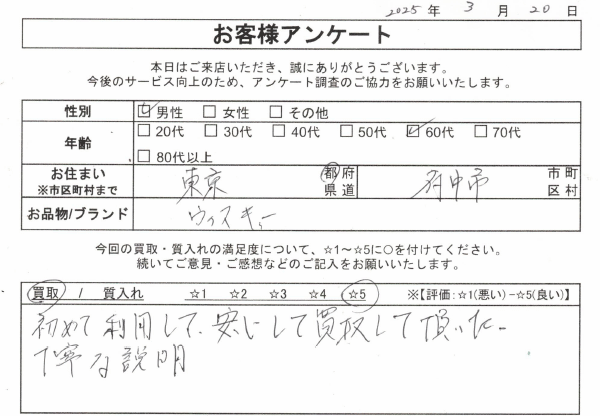 2025 年 3 月 20 日
お客様アンケート
本日はご来店いただき、誠にありがとうございます。
今後のサービス向上のため、アンケート調査のご協力をお願いいたします。
性別 ☑ 男性 □ 女性 □ その他
年齢 □ 20代 □ 30代 □ 40代 □ 50代 ☑ 60代 □ 70代
□ 80代以上
お住まい 東京 都府 府中市 市町
※市区町村まで 県道 区村
お品物/ブランド ウイスキー
今回の買取・質入れの満足度について、☆1～☆5に○を付けてください。
続いてご意見・ご感想などのご記入をお願いいたします。
買取 / 質入れ ☆1 ☆2 ☆3 ☆4 ☆5 ※【評価:☆1(悪い)-☆5(良い)】
初めて利用して、安心して買取して頂いた。
丁寧な説明